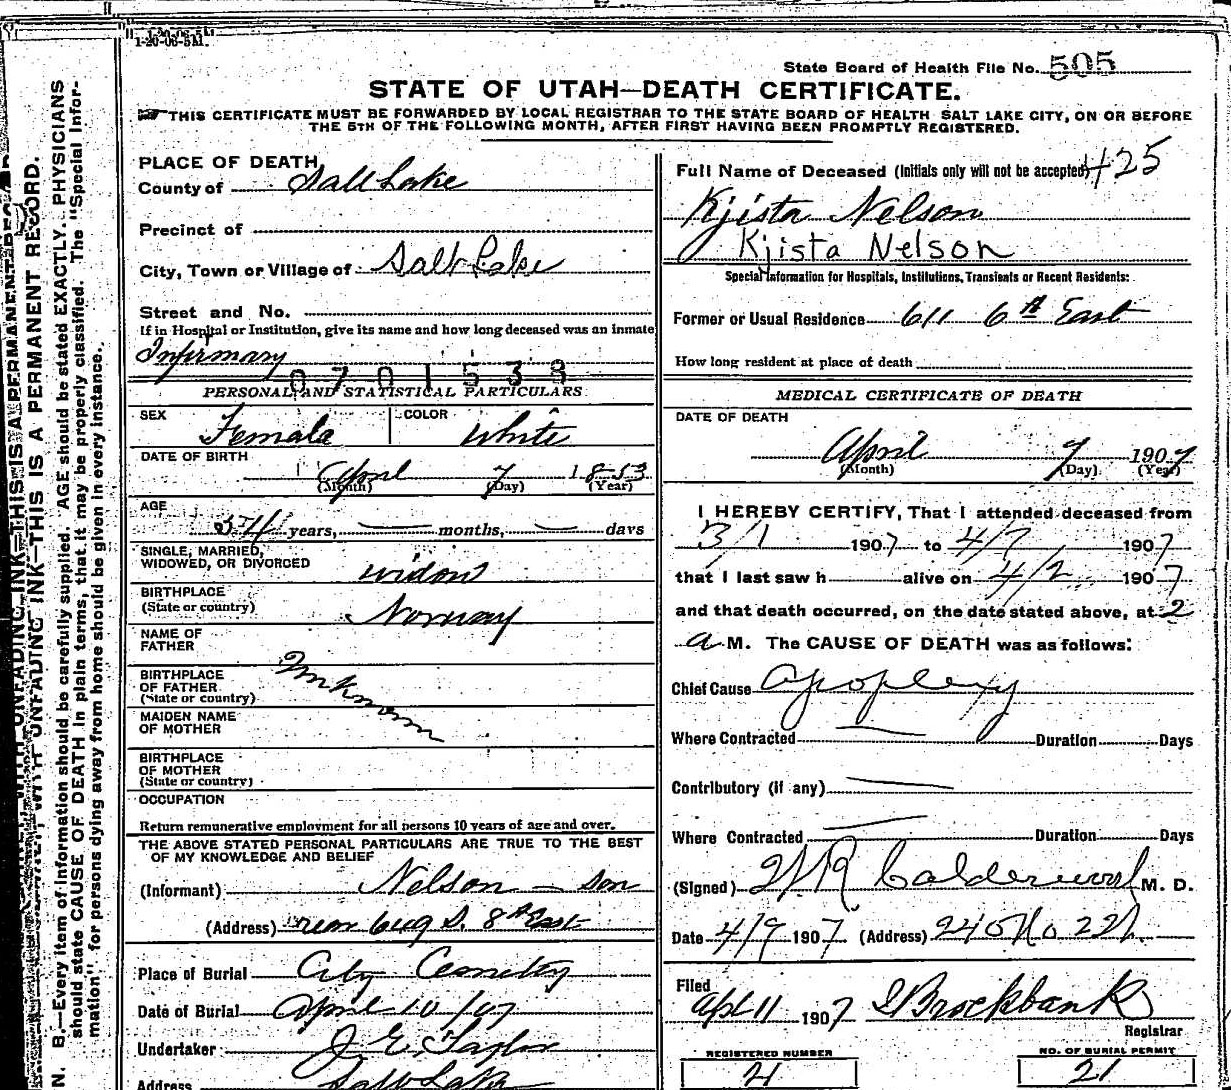 1-20-06-5M.
State Board of Health File No. 505
STATE OF UTAH—DEATH CERTIFICATE.
THIS CERTIFICATE MUST BE FORWARDED BY LOCAL REGISTRAR TO THE STATE BOARD OF HEALTH SALT LAKE CITY, ON OR BEFORE
THE 5TH OF THE FOLLOWING MONTH, AFTER FIRST HAVING BEEN PROMPTLY REGISTERED.
N. B.—Every item of information should be carefully supplied. AGE should be stated EXACTLY. PHYSICIANS
should state CAUSE OF DEATH in plain terms, that it may be properly classified. The "Special Infor-
mation" for persons dying away from home should be given in every instance.
WITH UNFADING INK—THIS IS A PERMANENT RECORD.
PLACE OF DEATH
County of Salt Lake
Precinct of
City, Town or Village of Salt Lake
Street and No.
If in Hospital or Institution, give its name and how long deceased was an inmate
Infirmary
0701538
PERSONAL AND STATISTICAL PARTICULARS
SEX Female COLOR White
DATE OF BIRTH
April 7 1853
(Month) (Day) (Year)
AGE
54 years, — months, — days
SINGLE, MARRIED,
WIDOWED, OR DIVORCED widow
BIRTHPLACE
(State or country) Norway
NAME OF
FATHER
Unknown
BIRTHPLACE
OF FATHER
(State or country)
MAIDEN NAME
OF MOTHER
BIRTHPLACE
OF MOTHER
(State or country)
OCCUPATION
Return remunerative employment for all persons 10 years of age and over.
THE ABOVE STATED PERSONAL PARTICULARS ARE TRUE TO THE BEST
OF MY KNOWLEDGE AND BELIEF
(Informant) Nelson — son
(Address) rear 649 S. 8th East
Place of Burial City Cemetry
Date of Burial April 10/07
Undertaker J. E. Taylor
Address Salt Lake
Full Name of Deceased (Initials only will not be accepted) 425
Kjista Nelson
Kjista Nelson
Special Information for Hospitals, Institutions, Transients or Recent Residents:
Former or Usual Residence 611 6th East
How long resident at place of death
MEDICAL CERTIFICATE OF DEATH
DATE OF DEATH
April 7 1907
(Month) (Day) (Year)
I HEREBY CERTIFY, That I attended deceased from
3/1 1907 to 4/7 1907
that I last saw h alive on 4/2 1907
and that death occurred, on the date stated above, at 2
a M. The CAUSE OF DEATH was as follows:
Chief Cause Apoplexy
Where Contracted — Duration Days
Contributory (if any) —
Where Contracted — Duration Days
(Signed) Calderwood M. D.
Date 4/9 1907 (Address)
Filed
Apl 11 1907 Brockbank
Registrar
REGISTERED NUMBER
21
NO. OF BURIAL PERMIT
21